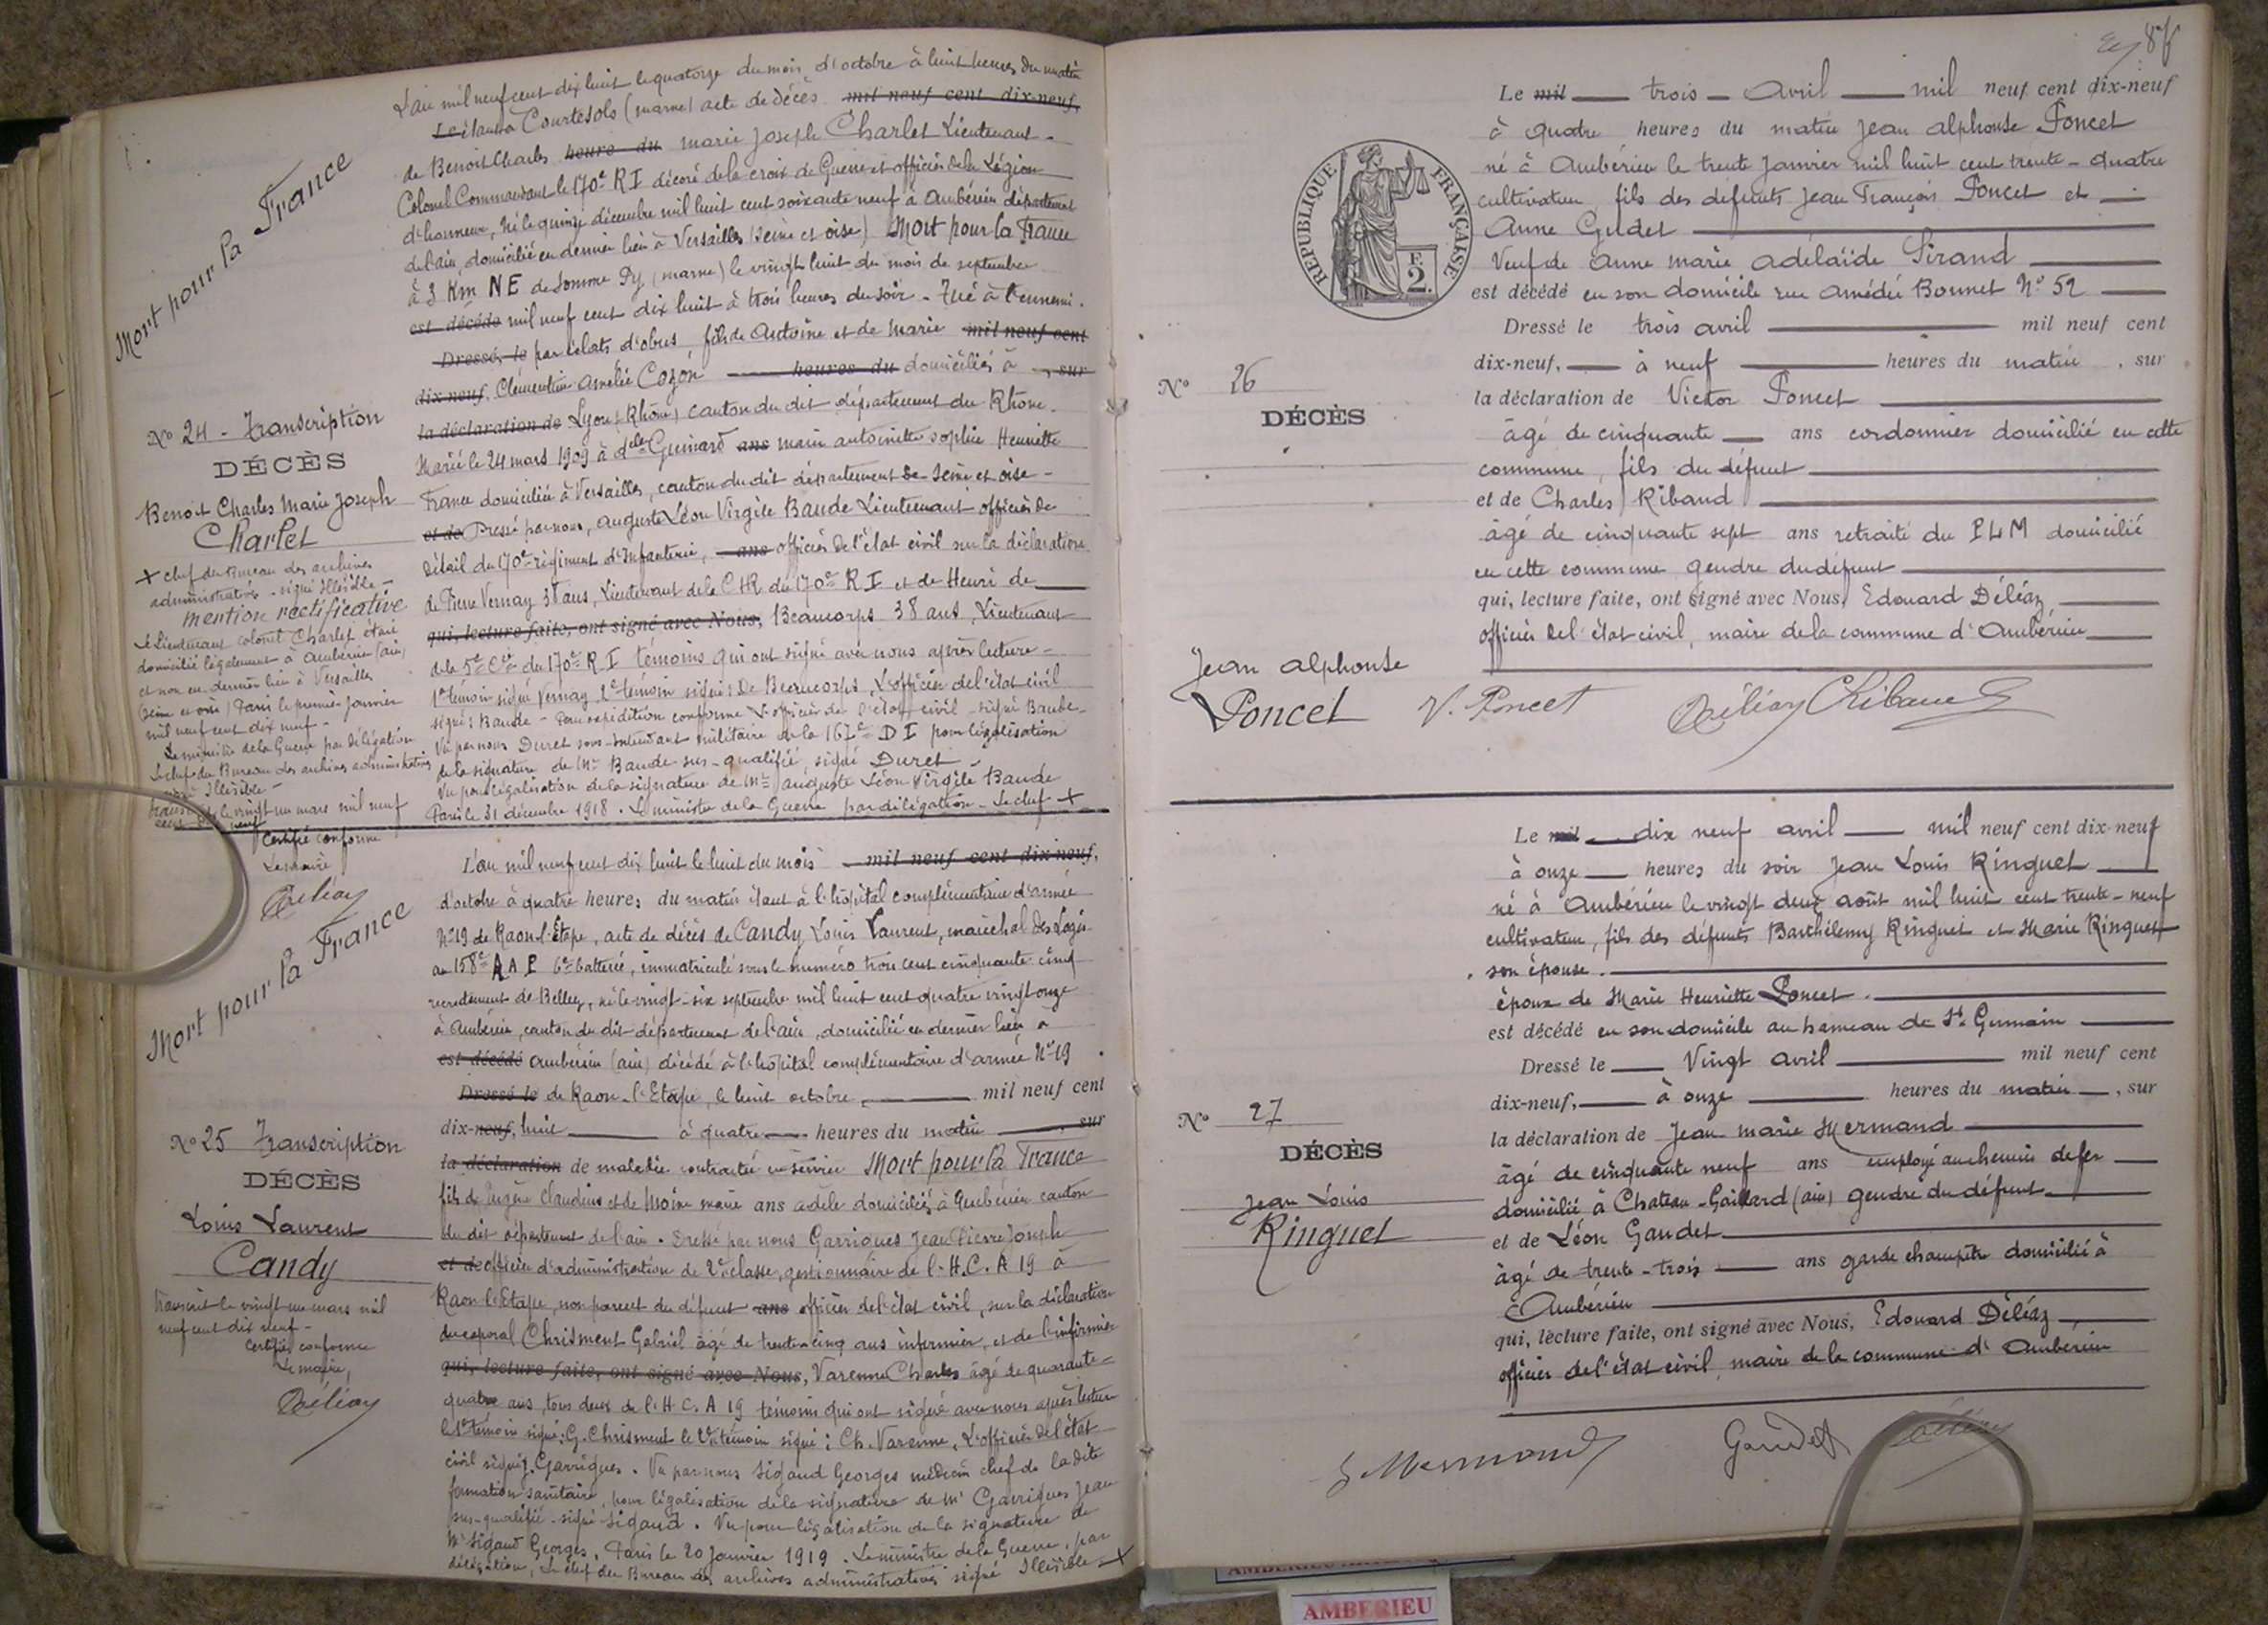 Mort pour la France
L'an mil neuf cent dix huit le quatorze du mois d'octobre à huit heures du matin
Le étant à Courtesols (marne) acte de décès mil neuf cent dix-neuf,
de Benoit Charles heure du marie Joseph Charlet Lieutenant-
Colonel Commandant le 170e RI décoré de la croix de Guerre et officier de la Légion
d'honneur, Né le quinze décembre mil huit cent soixante neuf à Ambérieu département
de l'ain, domicilié en dernier lieu à Versailles (seine et oise) Mort pour la France
à 3 Km NE de Somme Py (marne) le vingt huit du mois de septembre
est décédé mil neuf cent dix huit à trois heures du soir - Tué à l'ennemi.
Dressé, le par éclats d'obus fils de Antoine et de Marie mil neuf cent
dix-neuf, Clémentine Amélie Cozon heures du domiciliés à sur
la déclaration de Lyon (Rhône) canton du dit département du Rhône.
Marié le 24 mars 1909 à delle Guinard ans marie antoinette sophie Henriette
France domiciliée à Versailles, canton du dit département de Seine et oise -
et de Dressé par nous, Auguste Léon Virgile Baude Lieutenant officier de
détail du 170e régiment d'Infanterie, ans officier de l'état civil sur la déclaration
de Pierre Vernay ans, Lieutenant de la CHR du 170e R I et de Henri de
qui, lecture faite, ont signé avec Nous, Beaucorps 38 ans, Lieutenant
de la 5e Cie du 170e R I témoins qui ont signé avec nous après lecture -
1er témoin signé Vernay 2e témoin signé: De Beaucorps, L'officier de l'état civil
signé: Baude - Pour expédition conforme L'officier de l'état civil signé Baude -
Vu par nous Duret sous-Intendant militaire de la 167e D I pour légalisation
de la signature de Mr Baude sus-qualifié, signé Duret -
Vu pour légalisation de la signature de Mr Auguste Léon Virgile Baude
Paris le 31 décembre 1918. Le ministre de la Guerre par délégation - Le chef +
No 24 - Transcription
DÉCÈS
Benoit Charles Marie Joseph
Charlet
+ chef du Bureau des archives
administratives - signé Illisible -
mention rectificative
Le Lieutenant colonel Charlet était
domicilié légalement à Ambérieu (ain)
et non en dernier lieu à Versailles
(seine et oise) Paris le premier Janvier
mil neuf cent dix neuf -
Le ministre de la Guerre par délégation
Le chef du Bureau des archives administratives
signé Illisible -
le vingt un mars mil neuf
cent dix neuf
Certifié conforme
Le maire
Déléaz
Mort pour la France
L'an mil neuf cent dix huit le huit du mois mil neuf cent dix-neuf,
d'octobre à quatre heures du matin étant à l'hôpital complémentaire d'armée
No 19 de Raon-l'Etape, acte de décès de Candy Louis Laurent, maréchal des Logis
au 158e R A P 6e batterie, immatriculé sous le numéro trois cent cinquante cinq
recrutement de Belley, né le vingt-six septembre mil huit cent quatre vingt onze
à Ambérieu, canton du dit département de l'ain, domicilié en dernier lieu à
est décédé Ambérieu (ain) décédé à l'hôpital complémentaire d'armée No 19
Dressé le de Raon-l'Etape, le huit octobre, mil neuf cent
dix-neuf, huit à quatre heures du matin sur
la déclaration de maladie contractée en service Mort pour la France
fils de Eugène Claudius et de Moine marie ans adèle domiciliés à Ambérieu canton
du dit département de l'ain. Dressé par nous Garrigues Jean Pierre Joseph
et de officier d'administration de 2e classe, gestionnaire de l'H.C.A 19 à
Raon-l'Etape, non parent du défunt ans officier de l'état civil, sur la déclaration
du caporal Chrisment Gabriel âgé de trente cinq ans infirmier, et de l'infirmier
qui, lecture faite, ont signé avec Nous, Varenne Charles âgé de quarante-
quatre ans, tous deux de l'H.C.A 19 témoins qui ont signé avec nous après lecture
le 1er témoin signé: G. Chrisment le 2e témoin signé: Ch. Varenne, L'officier de l'état
civil signé J. Garrigues. Vu par nous Sigaud Georges médecin chef de la dite
formation sanitaire, pour légalisation de la signature de Mr Garrigues Jean
sus-qualifié - signé Sigaud. Vu pour légalisation de la signature de
Mr Sigaud Georges, Paris le 20 Janvier 1919. Le ministre de la Guerre, par
délégation, Le chef du Bureau des archives administratives signé Illisible +
No 25 Transcription
DÉCÈS
Louis Laurent
Candy
Transcrit le vingt un mars mil
neuf cent dix neuf -
Certifié conforme
Le maire,
Déléaz
87
Le mil trois Avril mil neuf cent dix-neuf
à quatre heures du matin Jean Alphonse Poncet
né à Ambérieu le trente Janvier mil huit cent trente-quatre
cultivateur, fils des défunts Jean François Poncet et
Anne Gudet
Veuf de Anne marie adélaïde Sirand
est décédé en son domicile rue Amédée Bonnet No 52
Dressé le trois avril mil neuf cent
dix-neuf, à neuf heures du matin, sur
la déclaration de Victor Poncet
âgé de cinquante ans cordonnier domicilié en cette
commune, fils du défunt
et de Charles Ribaud
âgé de cinquante sept ans retraité du PLM domicilié
en cette commune gendre du défunt
qui, lecture faite, ont signé avec Nous, Edouard Déléaz,
officier de l'état civil, maire de la commune d'Ambérieu
RÉPUBLIQUE FRANÇAISE
F.
2.
No 26
DÉCÈS
Jean Alphonse
Poncet
V. Poncet Déléaz CRibaud
Le mil dix neuf avril mil neuf cent dix-neuf
à onze heures du soir Jean Louis Ringuet
né à Ambérieu le vingt deux août mil huit cent trente-neuf
cultivateur, fils des défunts Barthélemy Ringuet et Marie Ringuet
son épouse.
époux de Marie Henriette Poncet.
est décédé en son domicile au hameau de St Germain
Dressé le Vingt avril mil neuf cent
dix-neuf, à onze heures du matin, sur
la déclaration de Jean marie Mermand
âgé de cinquante neuf ans employé au chemin de fer
domicilié à Chateau-Gaillard (ain) gendre du défunt
et de Léon Gaudet
âgé de trente-trois ans garde champêtre domicilié à
Ambérieu
qui, lecture faite, ont signé avec Nous, Edouard Déléaz,
officier de l'état civil, maire de la commune d'Ambérieu
No 27
DÉCÈS
Jean Louis
Ringuet
J Mermand Gaudet Déléaz
AMBERIEU